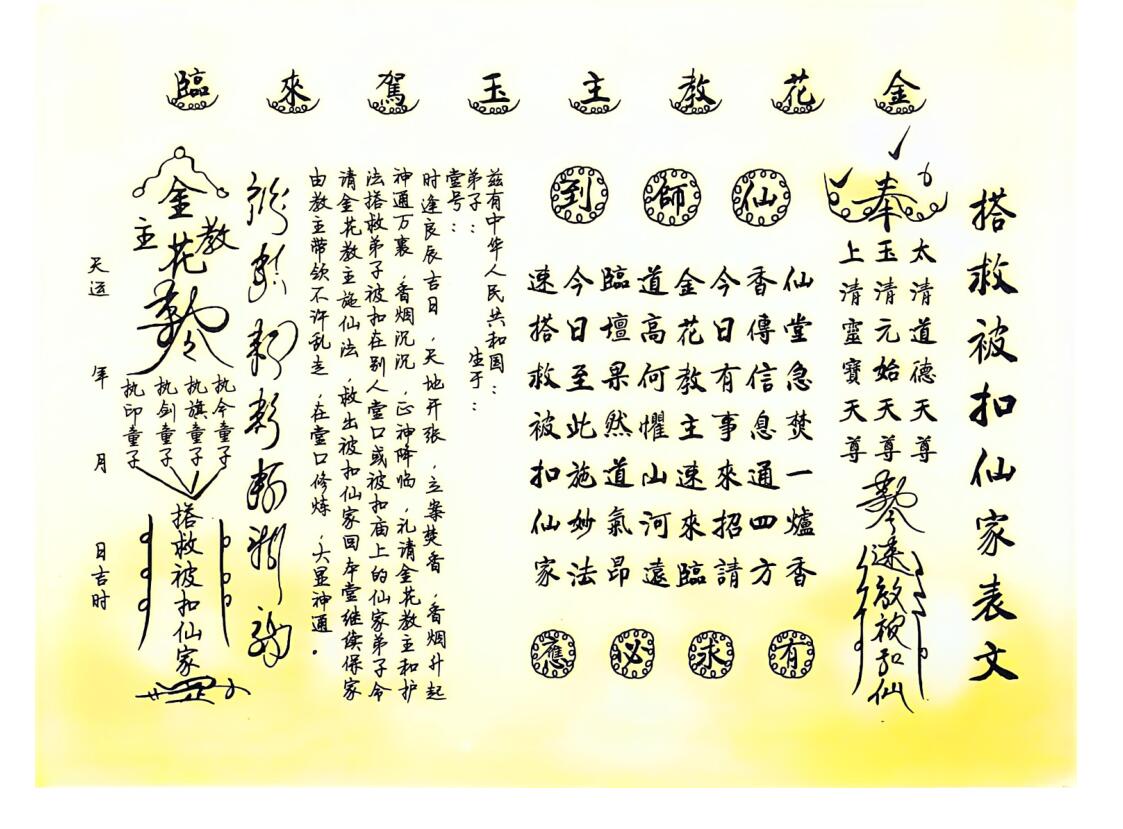 金花教主玉駕來臨
搭救被扣仙家表文
奉
太清道德天尊
玉清元始天尊
上清靈寶天尊
速放被扣仙
仙師到
仙堂急焚一爐香
香傳信息通四方
今日有事來招請
金花教主速來臨
道高何懼山河遠
臨壇果然道氣昂
今日至此施妙法
速搭救被扣仙家
有求必應
兹有中华人民共和国：
弟子： 生于：
堂号：
时逢良辰吉日，天地开张，立案焚香，香烟升起
神通万裏，香烟沉沉，正神降临，礼请金花教主和护
法搭救弟子被扣在别人堂口或被扣庙上的仙家弟子今
请金花教主施仙法，救出被扣仙家回本堂继续保家
由教主带领不许乱走，在堂口修炼，大显神通。
金花教主
执令童子
执旗童子
执剑童子
执印童子
搭救被扣仙家
天运 年 月 日吉时